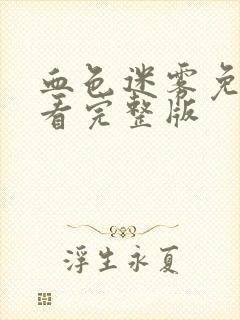 血色迷雾免
看完整版
浮生永夏